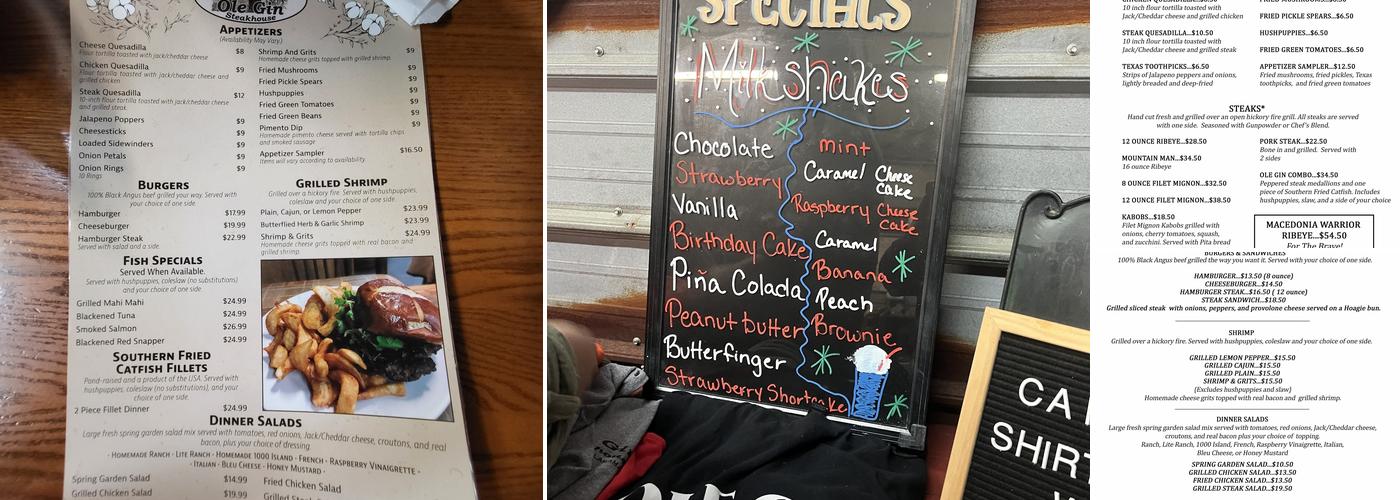 Ole Gin
Steakhouse
APPETIZERS
(Availability May Vary)
Cheese Quesadilla $8
Flour tortilla toasted with jack/cheddar cheese
Chicken Quesadilla $9
Flour tortilla toasted with jack/cheddar cheese and
grilled chicken
Steak Quesadilla $12
10-inch flour tortilla toasted with jack/cheddar cheese
and grilled steak.
Jalapeno Poppers $9
Cheesesticks $9
Loaded Sidewinders $9
Onion Petals $9
Onion Rings $9
10 Rings
Shrimp And Grits $9
Homemade cheese grits topped with grilled shrimp.
Fried Mushrooms $9
Fried Pickle Spears $9
Hushpuppies $9
Fried Green Tomatoes $9
Fried Green Beans $9
Pimento Dip $9
Homemade pimento cheese served with tortilla chips
and smoked sausage
Appetizer Sampler $16.50
Items will vary according to availability.
BURGERS
100% Black Angus beef grilled your way. Served with
your choice of one side.
Hamburger $17.99
Cheeseburger $19.99
Hamburger Steak $22.99
Served with salad and a side.
GRILLED SHRIMP
Grilled over a hickory fire. Served with hushpuppies,
coleslaw and your choice of one side.
Plain, Cajun, or Lemon Pepper $23.99
Butterflied Herb & Garlic Shrimp $23.99
Shrimp & Grits $24.99
Homemade cheese grits topped with real bacon and
grilled shrimp.
FISH SPECIALS
Served When Available.
Served with hushpuppies, coleslaw (no substitutions),
and your choice of one side.
Grilled Mahi Mahi $24.99
Blackened Tuna $24.99
Smoked Salmon $26.99
Blackened Red Snapper $24.99
SOUTHERN FRIED
CATFISH FILLETS
Pond-raised and a product of the USA. Served with
hushpuppies, coleslaw (no substitutions), and your
choice of one side.
2 Piece Fillet Dinner $24.99
DINNER SALADS
Large fresh spring garden salad mix served with tomatoes, red onions, Jack/Cheddar cheese, croutons, and real
bacon, plus your choice of dressing.
· HOMEMADE RANCH · LITE RANCH · HOMEMADE 1000 ISLAND · FRENCH · RASPBERRY VINAIGRETTE ·
· ITALIAN · BLEU CHEESE · HONEY MUSTARD ·
Spring Garden Salad $14.99
Grilled Chicken Salad $19.99
Fried Chicken Salad
SPECIALS
Milkshakes
Chocolate
Strawberry
Vanilla
Birthday Cake
Piña Colada
Peanut butter
Butterfinger
Strawberry Shortcake
mint
Caramel Cheese
Cake
Raspberry Cheese
Cake
Caramel
Banana
Peach
Brownie
CA
SHIRT
10 inch flour tortilla toasted with
Jack/Cheddar cheese and grilled chicken
STEAK QUESADILLA...$10.50
10 inch flour tortilla toasted with
Jack/Cheddar cheese and grilled steak
TEXAS TOOTHPICKS...$6.50
Strips of Jalapeno peppers and onions,
lightly breaded and deep-fried
FRIED PICKLE SPEARS...$6.50
HUSHPUPPIES...$6.50
FRIED GREEN TOMATOES...$6.50
APPETIZER SAMPLER...$12.50
Fried mushrooms, fried pickles, Texas
toothpicks, and fried green tomatoes
STEAKS*
Hand cut fresh and grilled over an open hickory fire grill. All steaks are served
with one side. Seasoned with Gunpowder or Chef's Blend.
12 OUNCE RIBEYE...$28.50
MOUNTAIN MAN...$34.50
16 ounce Ribeye
8 OUNCE FILET MIGNON...$32.50
12 OUNCE FILET MIGNON...$38.50
KABOBS...$18.50
Filet Mignon Kabobs grilled with
onions, cherry tomatoes, squash,
and zucchini. Served with Pita bread
PORK STEAK...$22.50
Bone in and grilled. Served with
2 sides
OLE GIN COMBO...$34.50
Peppered steak medallions and one
piece of Southern Fried Catfish. Includes
hushpuppies, slaw, and a side of your choice
MACEDONIA WARRIOR
RIBEYE...$54.50
For The Brave!
BURGERS & SANDWICHES
100% Black Angus beef grilled the way you want it. Served with your choice of one side.
HAMBURGER...$13.50 (8 ounce)
CHEESEBURGER...$14.50
HAMBURGER STEAK...$16.50 ( 12 ounce)
STEAK SANDWICH...$18.50
Grilled sliced steak with onions, peppers, and provolone cheese served on a Hoagie bun.
SHRIMP
Grilled over a hickory fire. Served with hushpuppies, coleslaw and your choice of one side.
GRILLED LEMON PEPPER...$15.50
GRILLED CAJUN...$15.50
GRILLED PLAIN...$15.50
SHRIMP & GRITS...$15.50
(Excludes hushpuppies and slaw)
Homemade cheese grits topped with real bacon and grilled shrimp.
DINNER SALADS
Large fresh spring garden salad mix served with tomatoes, red onions, Jack/Cheddar cheese,
croutons, and real bacon plus your choice of topping.
Ranch, Lite Ranch, 1000 Island, French, Raspberry Vinaigrette, Italian,
Bleu Cheese, or Honey Mustard
SPRING GARDEN SALAD...$10.50
GRILLED CHICKEN SALAD...$13.50
FRIED CHICKEN SALAD...$13.50
GRILLED STEAK SALAD...$19.50